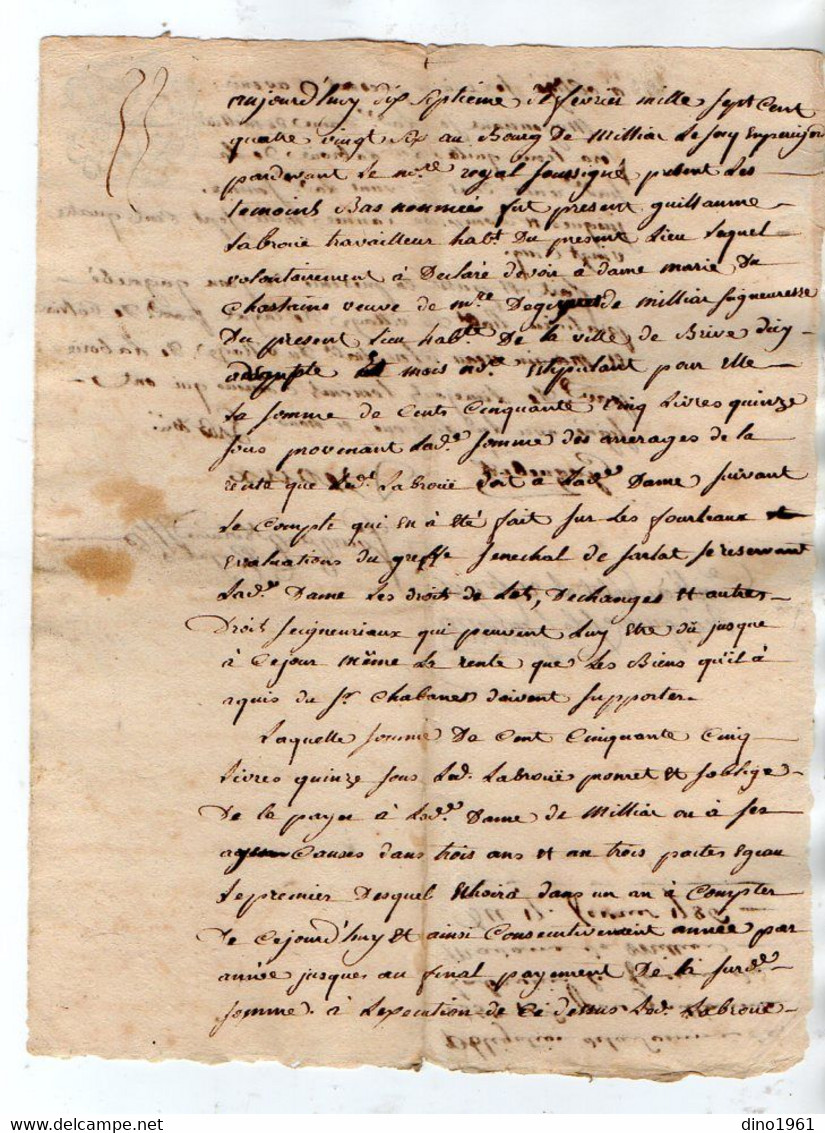 aujourd'huy dix septieme de fevrier mille sept cent
quatre vingt six au Bourg de Milliac
pardevant le n.re royal soussigné présent les
temoins Bas nommées fut present guillaume
Labrouë travailleur hab.t du present Lieu Lequel
volontairement à Declaré devoir à dame marie Du
Chastains veuve de m.re de milliac seigneuresse
Du present Lieu hab.te De la ville de Brive
mois stipulant pour elle
La somme de Cents Cinquante Cinq Livres quinze
sous provenant Lad.e somme des arrerages de la
rente que Led.t Labrouë doit à Lad.e Dame suivant
Le Compte qui en à été fait sur Les fourleaux et
evaluations du greffe senechal de sarlat se reservant
Lad.e Dame Les droits de Lots, Dechanges et autres
Droits seigneuriaux qui peuvent Luy etre dû jusque
à Cejour même La rente que Les Biens qu'il à
aquis du s.r Chabanes doivent supporter
Laquelle somme De Cent Cinquante Cinq
Livres quinze sous Led. Labrouë promet et soblige
De la payer à Lad.e Dame de Milliac ou à ses
Causes dans trois ans et an trois partes egeau
Le premier Desquel Echoira dans un an à Compter
de Cejourd'huy et ainsi Consecutivement année par
année jusques au final payement De la surd.e
somme. à L'execution de Ce dessus Led. Labrouë
dino1961